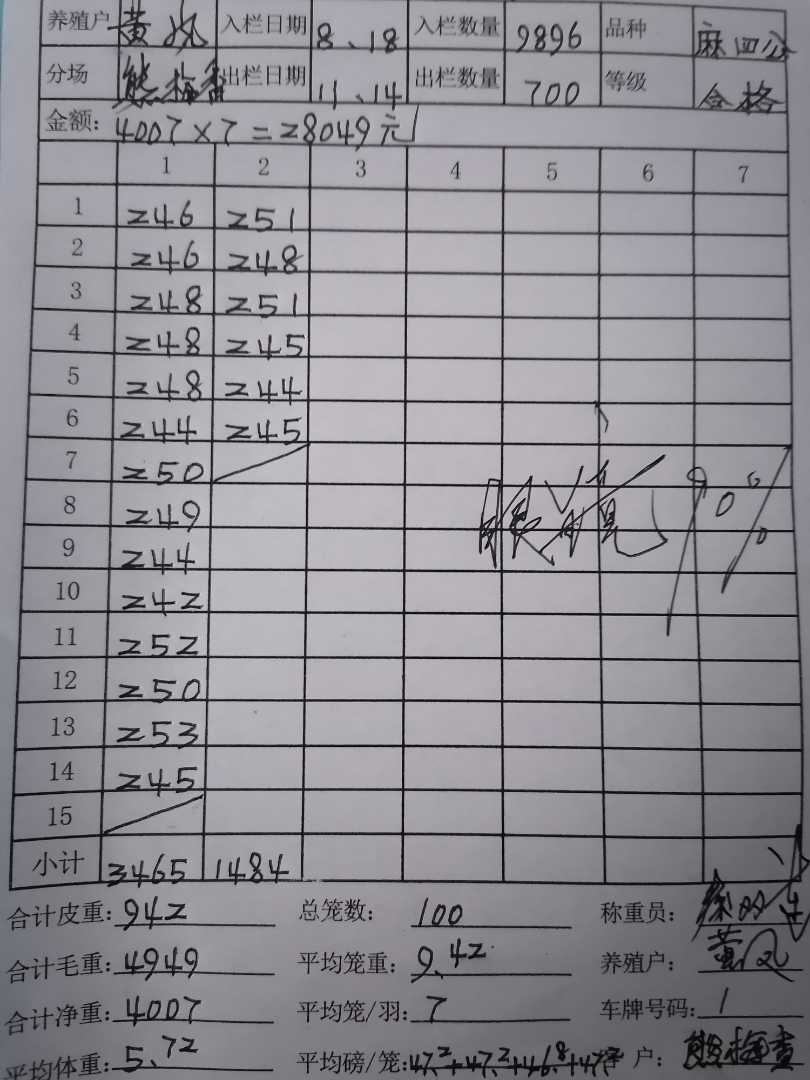 养殖户 黄凤 入栏日期 8.18 入栏数量 9896 品种 麻四公
分场 熊梅香 出栏日期 11.14 出栏数量 700 等级 合格
金额: 4007×7=28049元
1 2 3 4 5 6 7
1 246 251
2 246 248
3 248 251
4 248 245
5 248 244
6 244 245
7 250
8 249
9 244
10 242
11 252
12 250
13 253
14 245
15
小计 3465 1484
合计皮重: 942 总笼数: 100 称重员:
合计毛重: 4949 平均笼重: 9.42 养殖户: 黄凤
合计净重: 4007 平均笼/羽: 7 车牌号码: 1
平均体重: 5.72 平均磅/笼: 47.2+47.2+46.8+47.2 户: